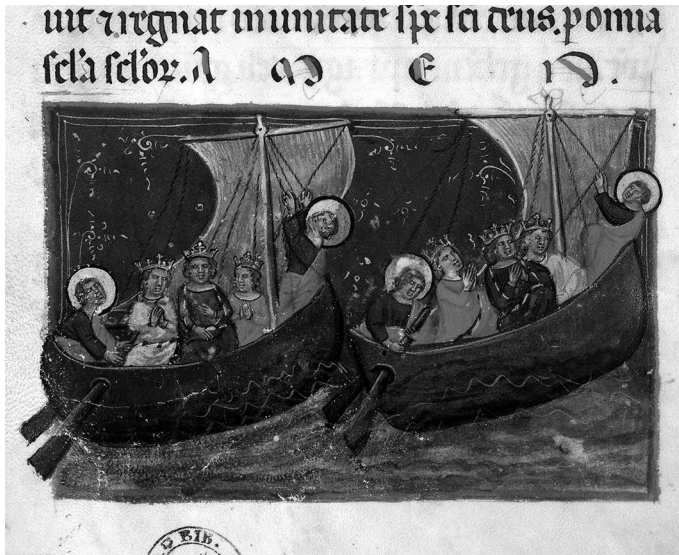 uit ⁊ regnat in unitate sps sci deus. p omia
scl'a scl'oꝝ. A M E N.
BIB.